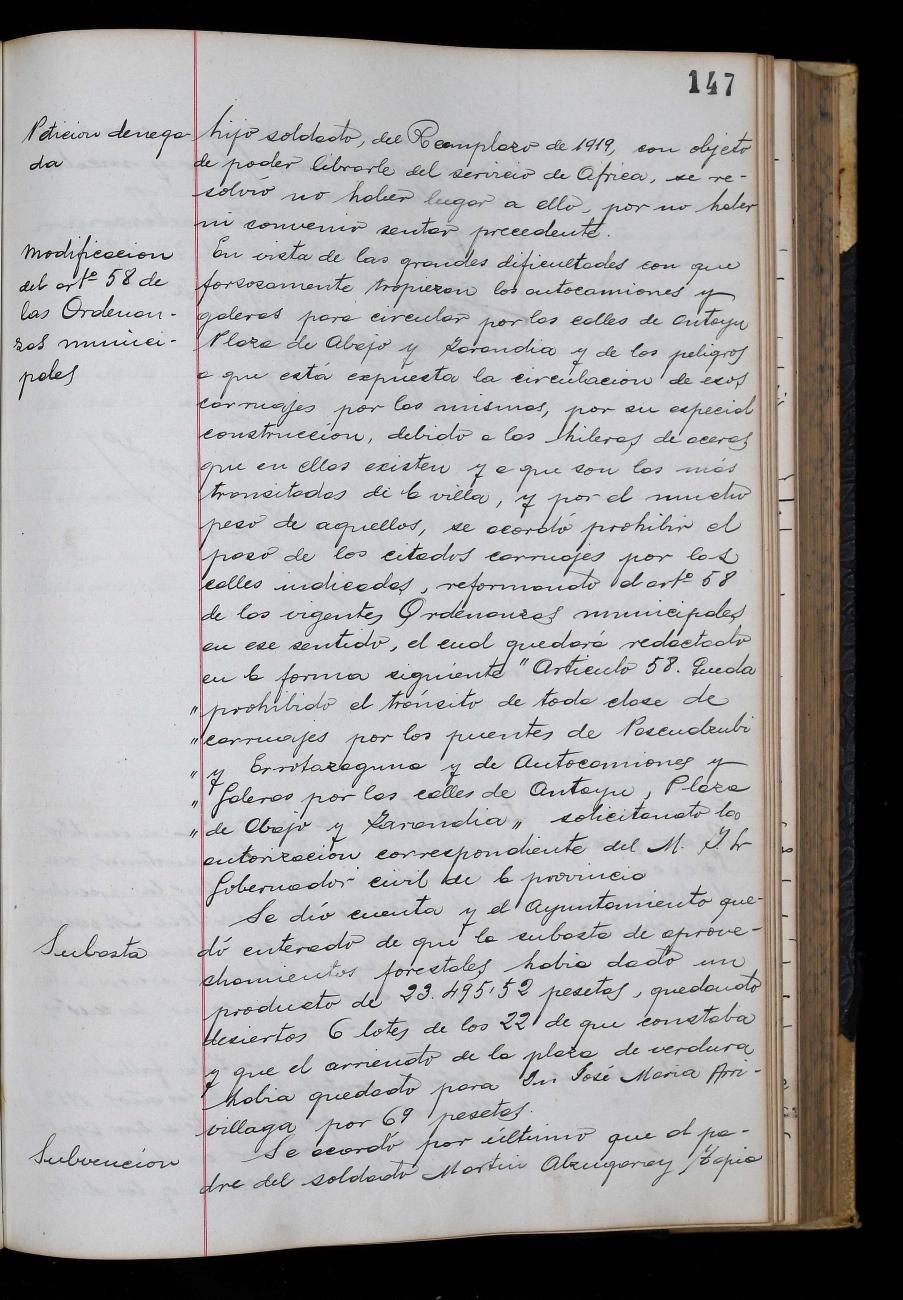 147
Peticion denega-
da
hijo soldado, del Reemplazo de 1919, con objeto
de poder librarle del servicio de Africa, se re-
solvió no haber lugar a ello, por no haber
ni convenir sentar precedente.
Modificacion
del artº 58 de
las Ordenan-
zas munici-
pales
En vista de las grandes dificultades con que
forzosamente tropiezan los autocamiones y
galeras para circular por las calles de Antoyu
Plaza de Abajo y Zarandia y de los peligros
a que está expuesta la circulacion de esos
carruajes por las mismas, por su especial
construccion, debido a las hileras de aceras
que en ellas existen y a que son las más
transitadas de la villa, y por el mucho
peso de aquellos, se acordó prohibir el
paso de los citados carruajes por las
calles indicadas, reformando el artº 58
de las vigentes Ordenanzas municipales
en ese sentido, el cual quedará redactado
en la forma siguiente "Articulo 58. Queda
" prohibido el tránsito de toda clase de
" carruajes por los puentes de Pascudzubi
" y Errotazaguna y de Autocamiones y
" Galeras por las calles de Antoyu, Plaza
" de Abajo y Zarandia „ solicitando la
autorización correspondiente del M. I. Sr
Gobernador civil de la provincia
Subasta
Se dió cuenta y el Ayuntamiento que-
dó enterado de que la subasta de aprove-
chamientos forestales habia dado un
producto de 23.495'52 pesetas, quedando
desiertos 6 lotes de los 22 de que constaba
y que el arriendo de la plaza de verdura
habia quedado para Dn José Maria Arri-
villaga por 69 pesetas.
Subvencion
Se acordó por último que al pa-
dre del soldado Martin Alzugaray Tapia